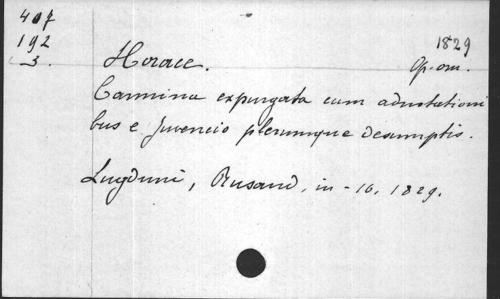 407
192
3.
1829
Horace.
Op. om.
Carmina expurgata cum adnotationi
bus e Juvencio plerumque desumptis.
Lugduni, Rusand, in-16, 1829.